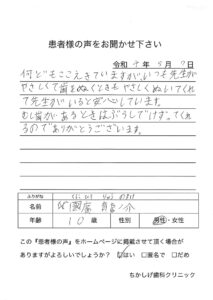 患者様の声をお聞かせ下さい
令和 5年 5月 9日
何どもここえきていますが、いつも先生が
やさしくて歯をぬくときもやさしくぬいてくれ
て先生がいると安心しています。
むし歯があるときはぶうしてけず。てくれ
るのでありがとうございます。
ふりがな
名前
年齢 10歳 性別 男性・女性
この『患者様の声』をホームページに掲載させて頂く場合が
ありますがよろしいでしょうか? ☑はい □匿名で □だめ
ちかしげ歯科クリニック